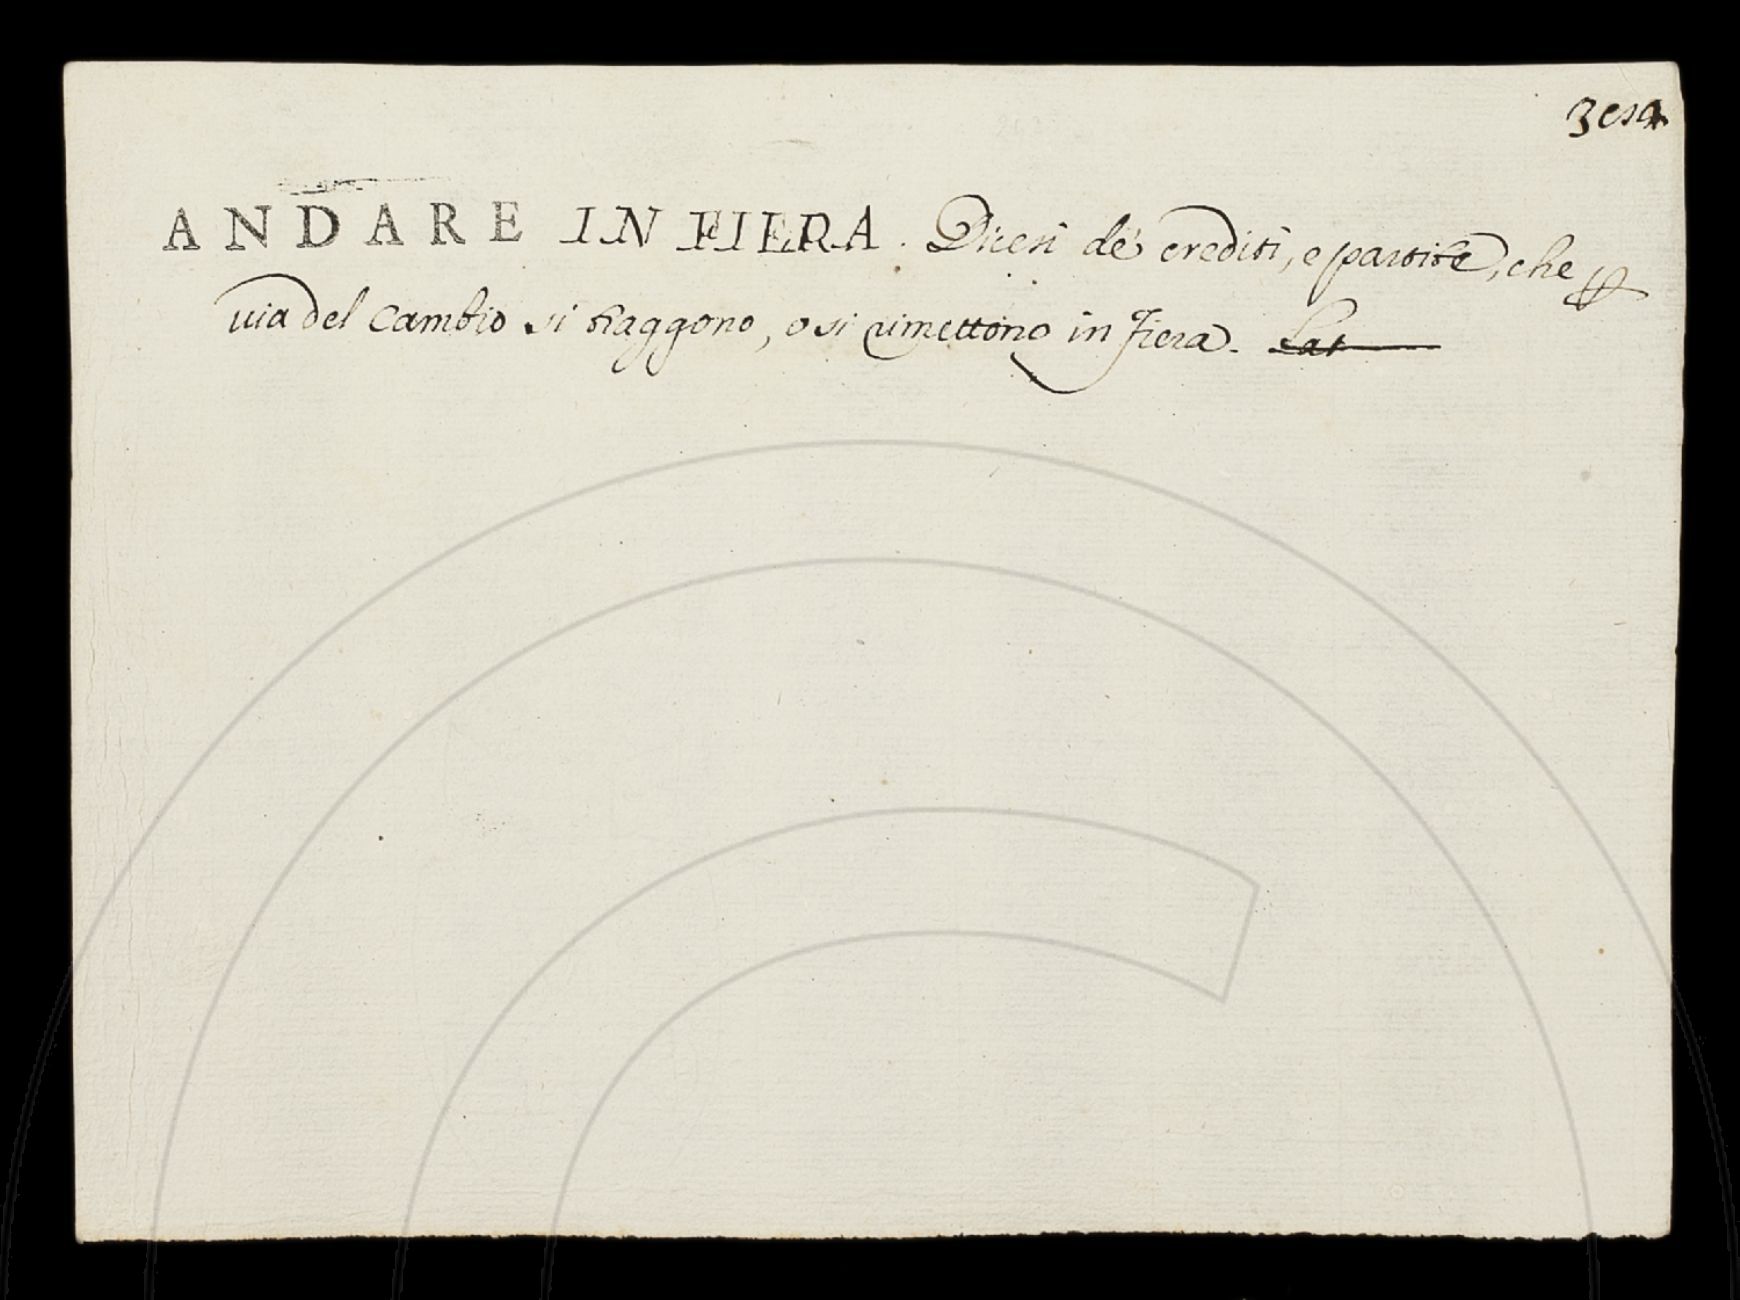 ANDARE IN FIERA. Dicesi de' crediti, e partite, che
via del Cambio si traggono, o si rimettono in Fiera. Lat